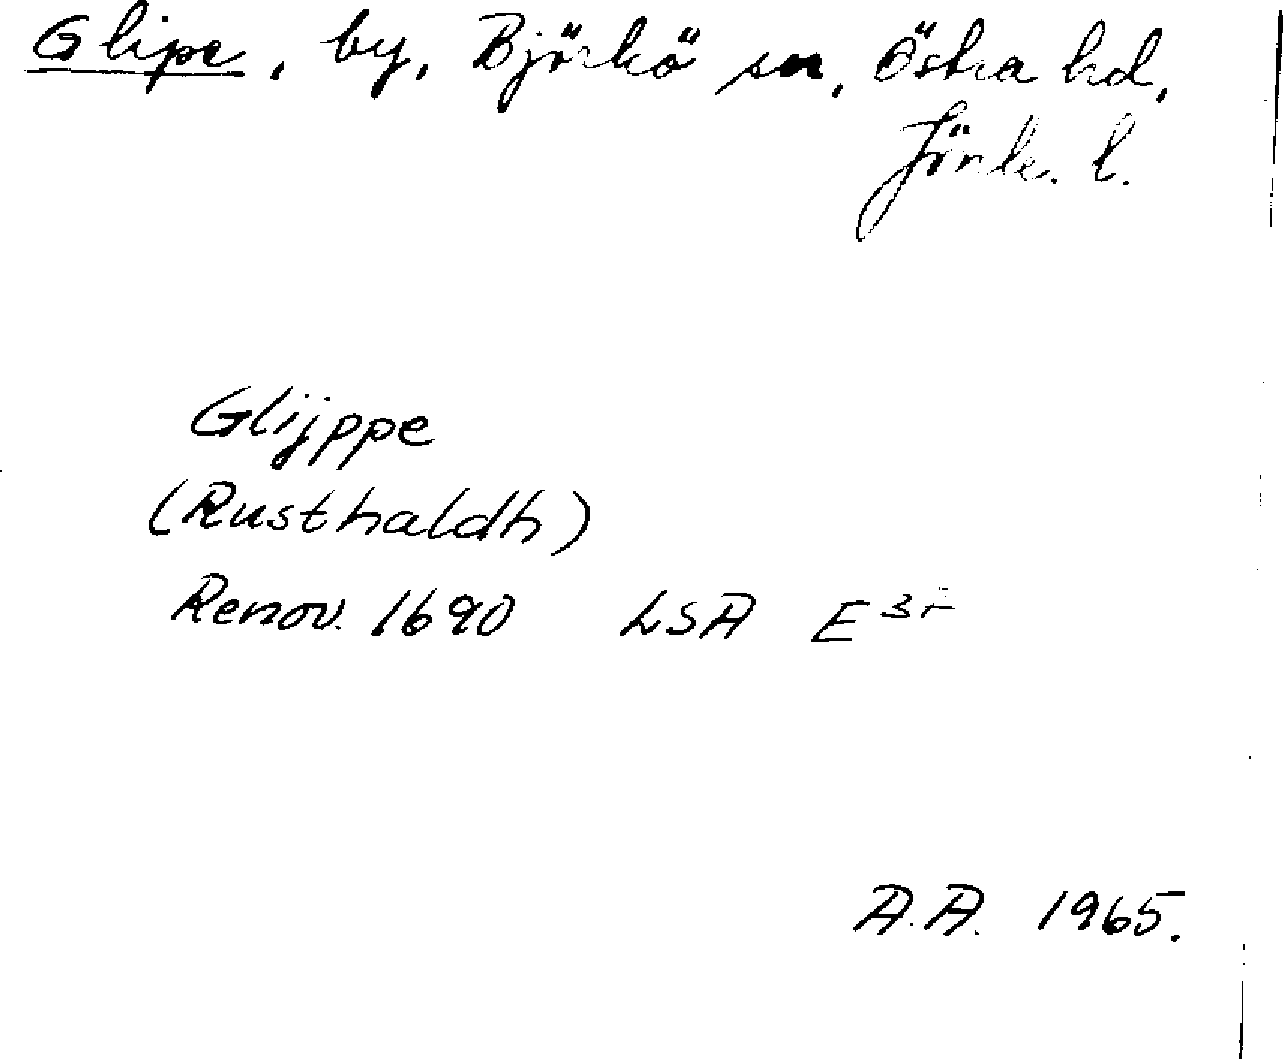 Glipe, by, Björkö sn, Östra hd,
Jönk. l.
Glijppe
(Rusthaldh)
Renov. 1690 LSA E
A.A. 1965.